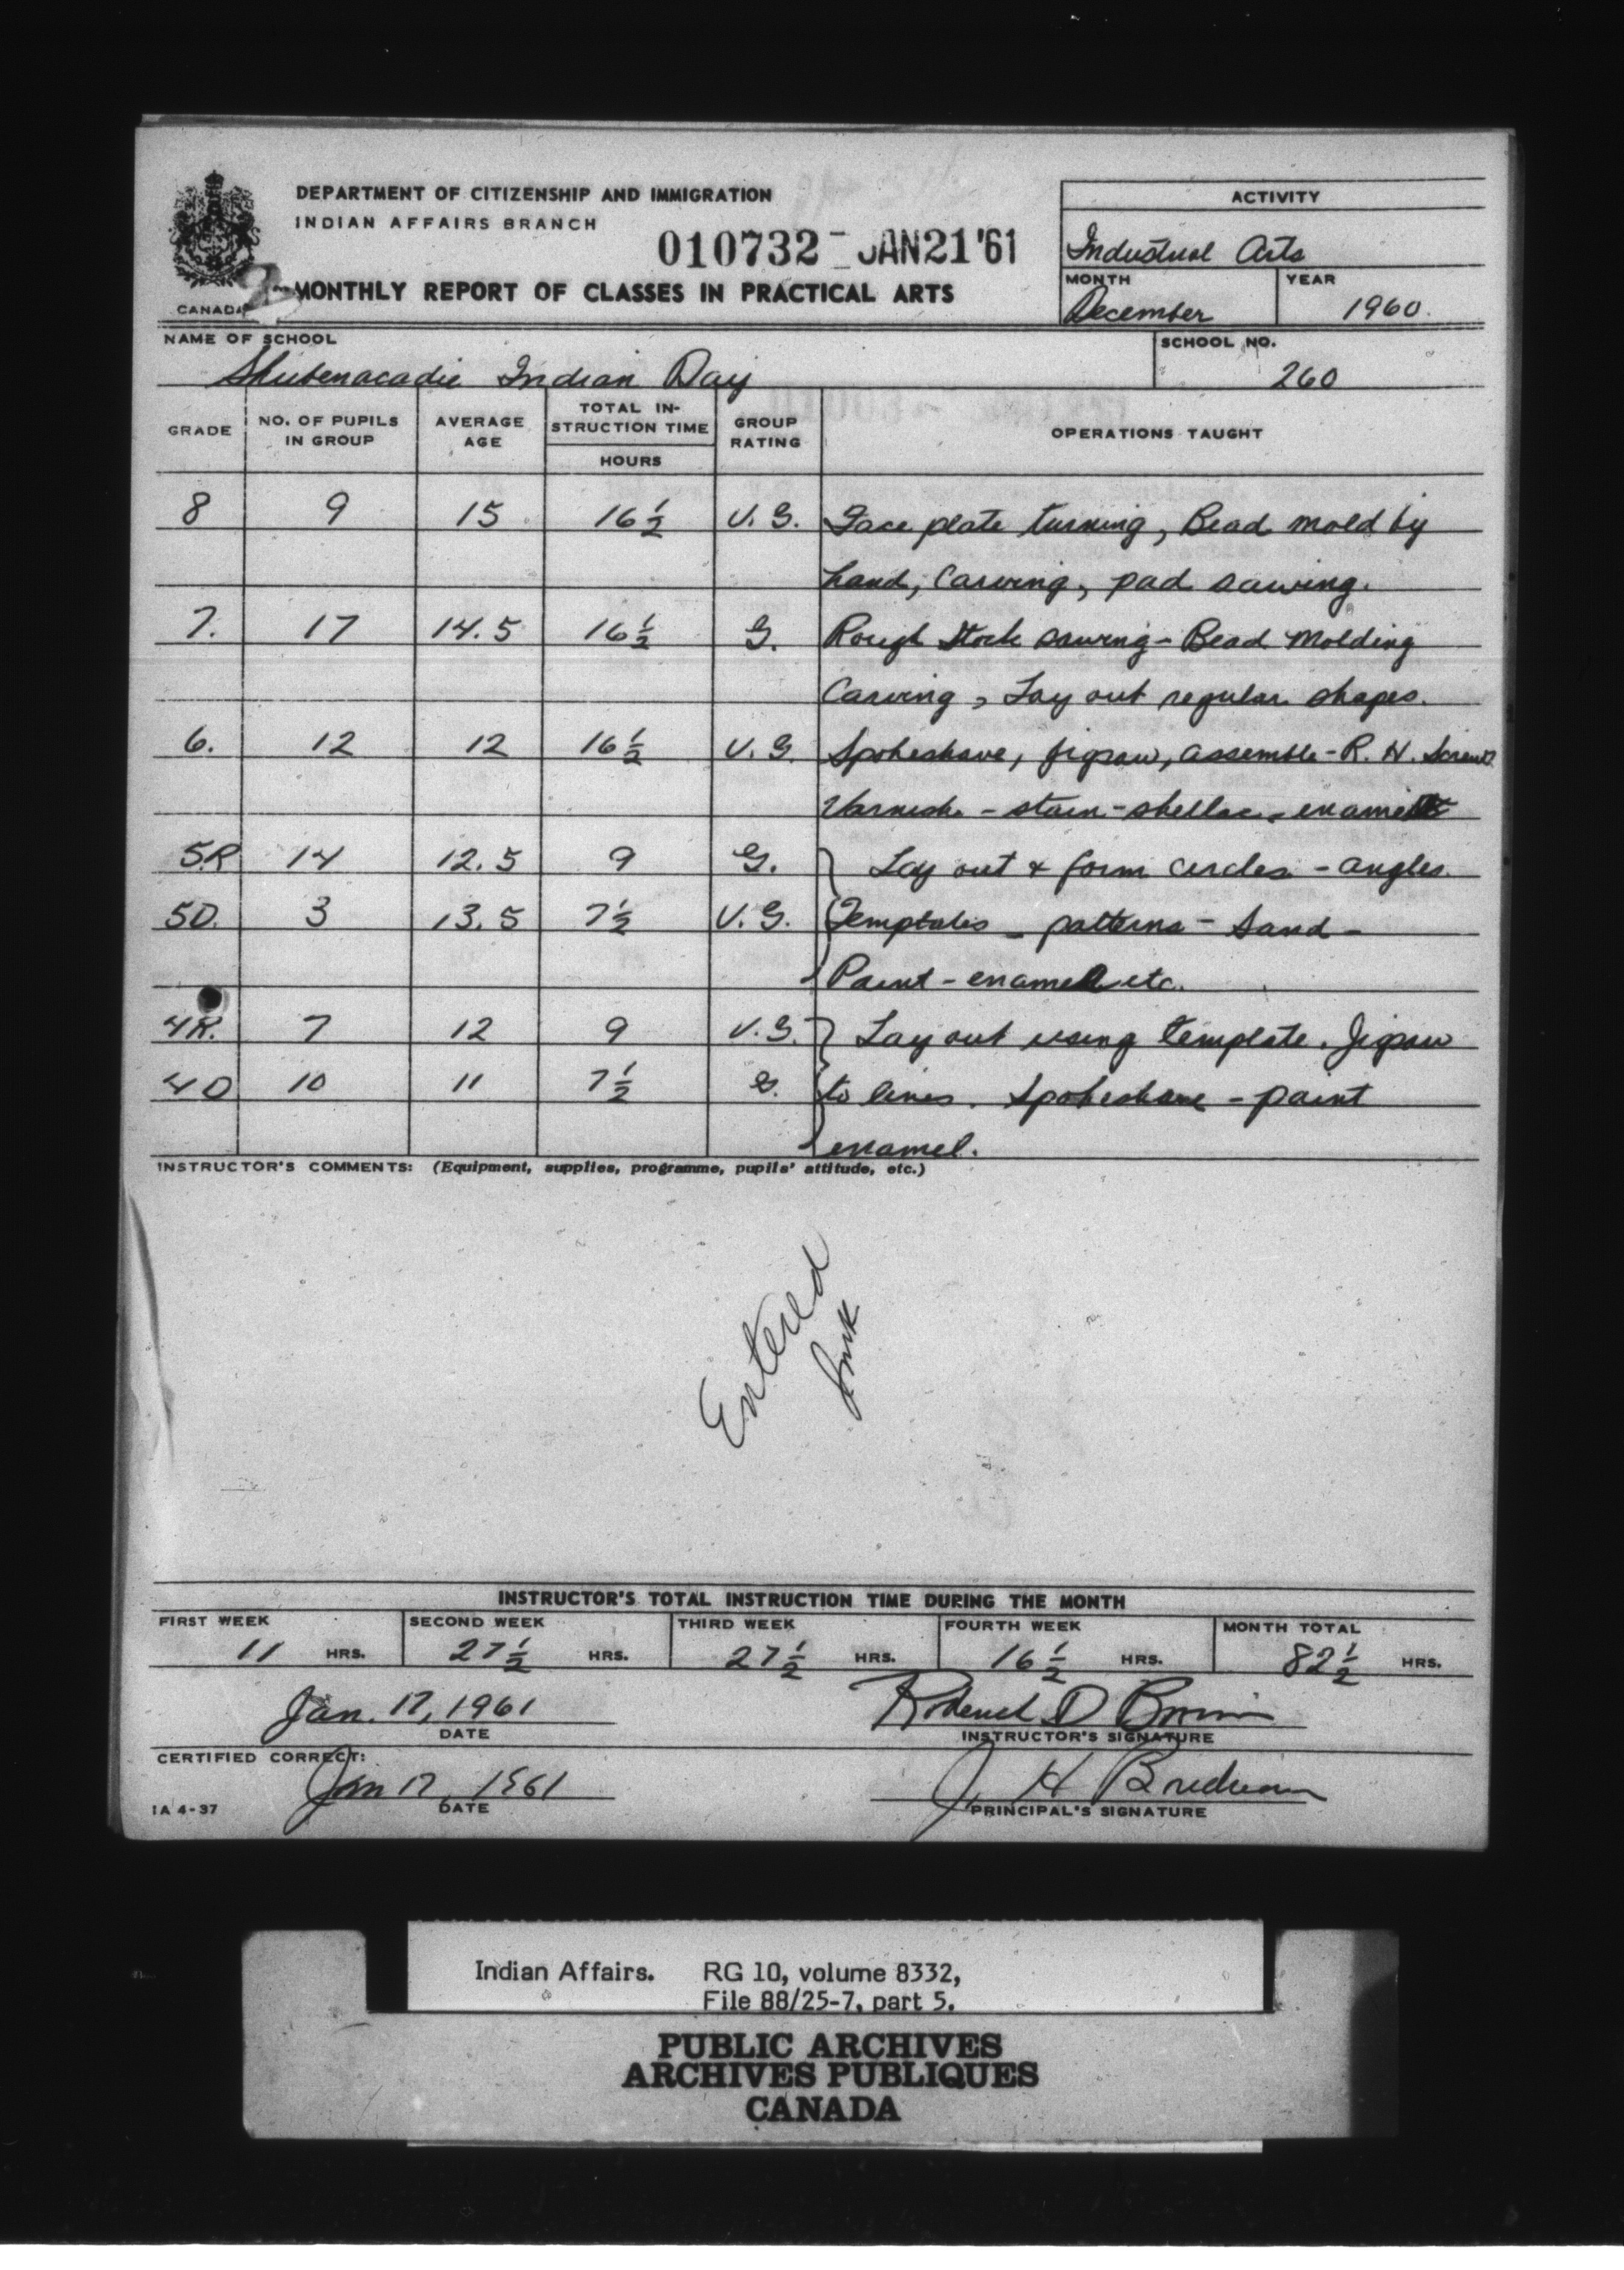 DEPARTMENT OF CITIZENSHIP AND IMMIGRATION
INDIAN AFFAIRS BRANCH
010732 - JAN 21 '61
CANADA
MONTHLY REPORT OF CLASSES IN PRACTICAL ARTS
ACTIVITY
Industrial Arts
MONTH YEAR
December 1960.
NAME OF SCHOOL SCHOOL NO.
Shubenacadie Indian Day 260
GRADE NO. OF PUPILS IN GROUP AVERAGE AGE TOTAL INSTRUCTION TIME HOURS GROUP RATING OPERATIONS TAUGHT
8 9 15 16 1/2 V. G. Face plate turning, Bead mold by
hand, Carving, pad sawing.
7. 17 14.5 16 1/2 G. Rough Stock sawing - Bead Molding
Carving, Lay out regular shapes.
6. 12 12 16 1/2 V. G. Spokeshave, jigsaw, assemble - R. H. Screws
Varnish - stain - shellac - enamel
5R 14 12.5 9 G. Lay out & form circles - angles.
5D. 3 13.5 7 1/2 V. G. Temptates - patterns - Sand -
Paint - enamel etc.
4R. 7 12 9 V. G. Lay out using template. Jigsaw
4D 10 11 7 1/2 G. to lines. Spokeshave - paint
enamel.
INSTRUCTOR'S COMMENTS: (Equipment, supplies, programme, pupils' attitude, etc.)
Entered
INSTRUCTOR'S TOTAL INSTRUCTION TIME DURING THE MONTH
FIRST WEEK SECOND WEEK THIRD WEEK FOURTH WEEK MONTH TOTAL
11 HRS. 27 1/2 HRS. 27 1/2 HRS. 16 1/2 HRS. 82 1/2 HRS.
Jan. 17, 1961 Roderick D
DATE INSTRUCTOR'S SIGNATURE
CERTIFIED CORRECT:
Jan 17, 1961 J. H
IA 4-37 DATE PRINCIPAL'S SIGNATURE
Indian Affairs. RG 10, volume 8332,
File 88/25-7, part 5.
PUBLIC ARCHIVES
ARCHIVES PUBLIQUES
CANADA